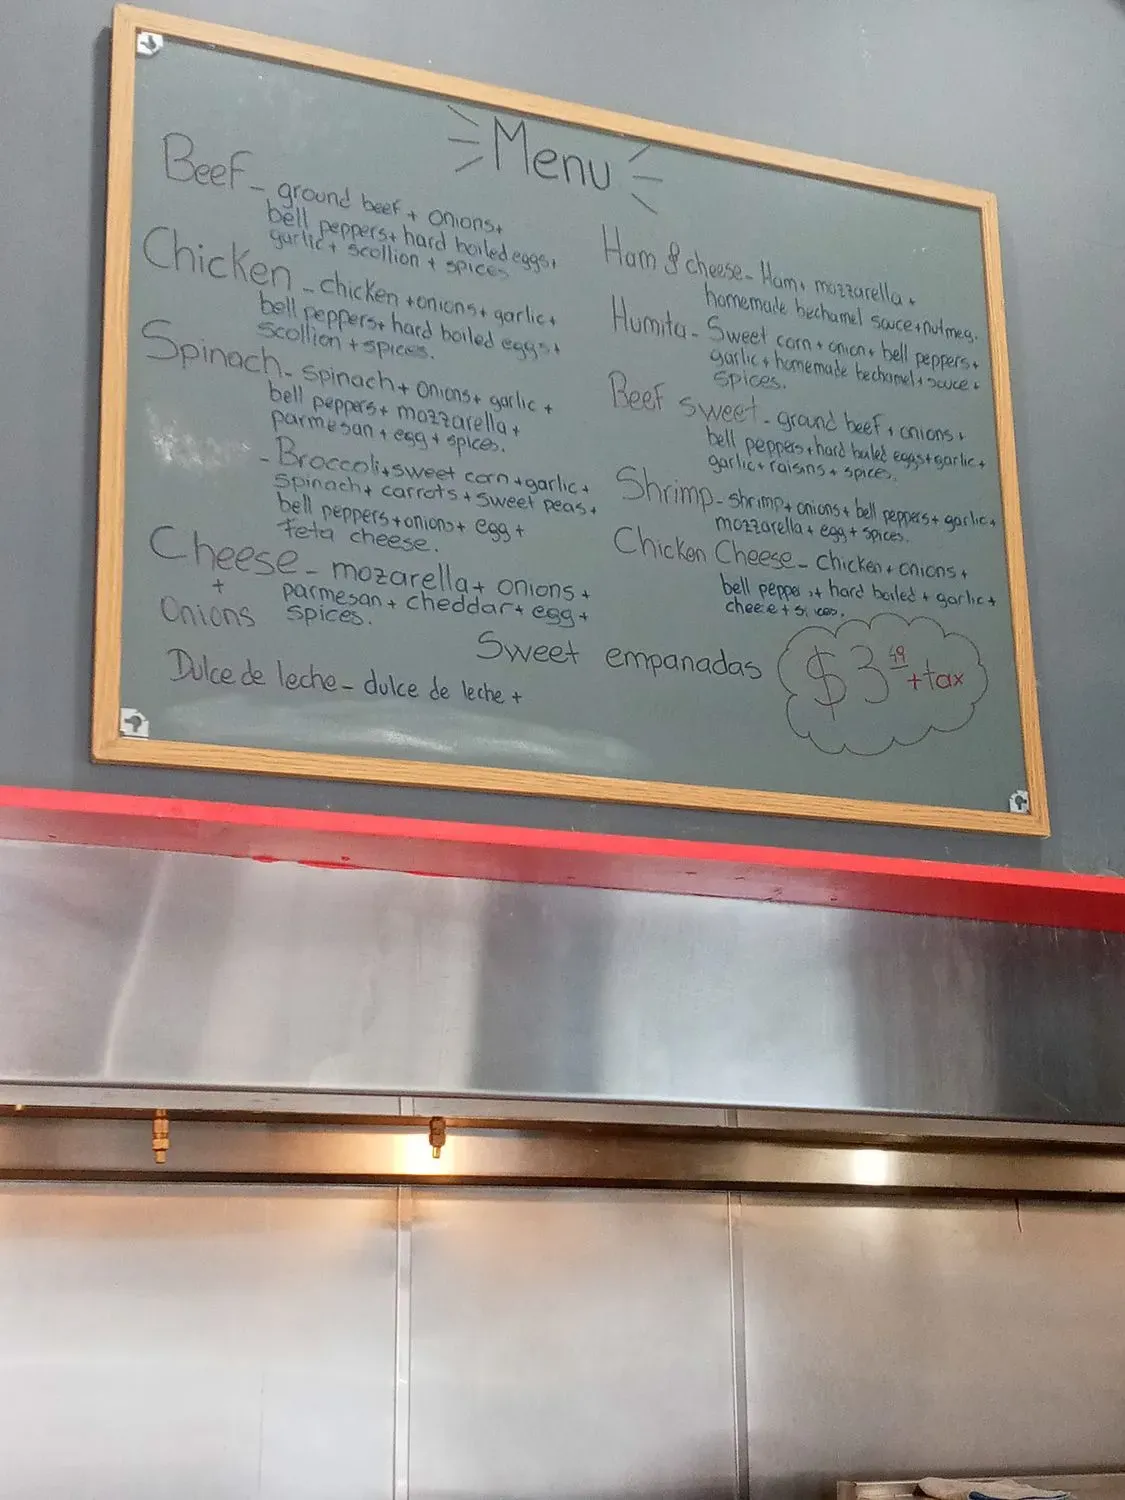 Menu
Beef - ground beef + onions+
bell peppers+ hard boiled eggs+
garlic + scollion + spices
Chicken - chicken +onions+ garlic+
bell peppers+ hard boiled eggs+
scollion + spices.
Spinach - spinach+ onions+ garlic +
bell peppers+ mozzarella+
parmesan + egg + spices.
- Broccoli+sweet corn+garlic+
spinach+ carrots + sweet peas+
bell peppers+onions+ egg+
Feta cheese.
Cheese - mozarella+ onions+
+ parmesan+ cheddar+ egg+
Onions spices.
Dulce de leche - dulce de leche +
Ham & cheese - Ham+ mozzarella+
homemade bechamel sauce+nutmeg.
Humita - Sweet corn+onion+ bell peppers+
garlic+homemade bechamel+sauce+
spices.
Beef sweet - ground beef + onions+
bell peppers+hard boiled eggs+garlic+
garlic+raisins+ spices.
Shrimp - shrimp+ onions+ bell peppers+ garlic+
mozzarella + egg + spices.
Chicken Cheese - chicken + onions+
bell pepper + hard boiled + garlic+
cheese +
Sweet empanadas
$3 49 + tax